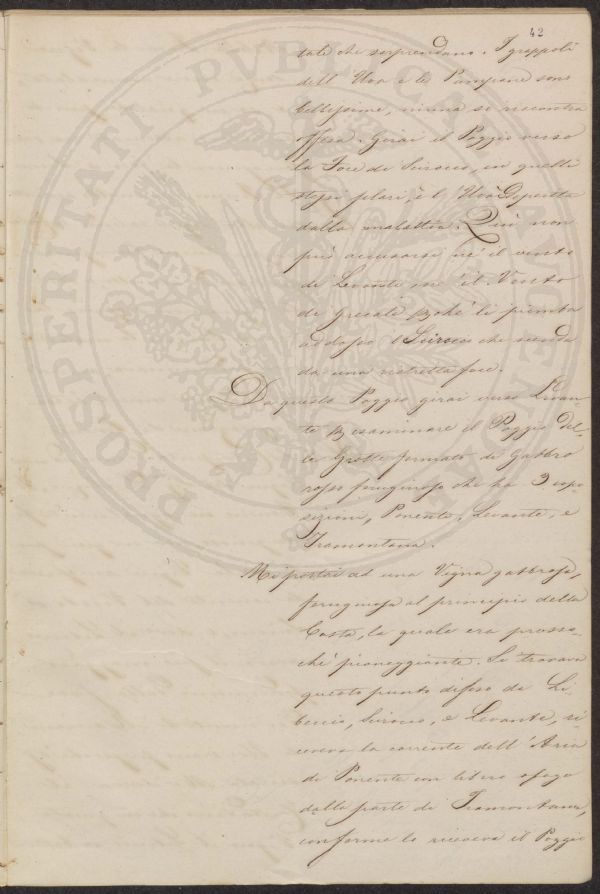 42
tali che sorprendano. I grappoli
dell'Uva e le Pampane sono
bellissime, niuna se riscontra
offesa. Girai il Poggio verso
la Foce di Scirocco, in quelli
stessi filari, è l'Uva Geperitta
dalla malattia. Qui non
può accusarsi nè il vento
di Levante nè il Vento
di grecale pchè li piomba
addosso l'Scirocco che scende
da una ristretta foce.
Da questo Poggio girai verso Levan-
te p esaminare il Poggio del-
le Grotte formato di Gabbro
rosso ferruginoso che ha 3 espo-
sizioni, Ponente, Levante, e
Tramontana.
Mi portai ad una Vigna gabbrosa,
ferruginosa al principio della
Costa, la quale era presso-
chè pianeggiante. Si trovava
questo punto difeso da Li-
beccio, Scirocco, e Levante, ri-
ceveva la corrente dell'Aria
di Ponente con libero sfogo
dalla parte di Tramontana,
conforme la riceveva il Poggio
PROSPERITATI PVBLICAE AVGENDAE